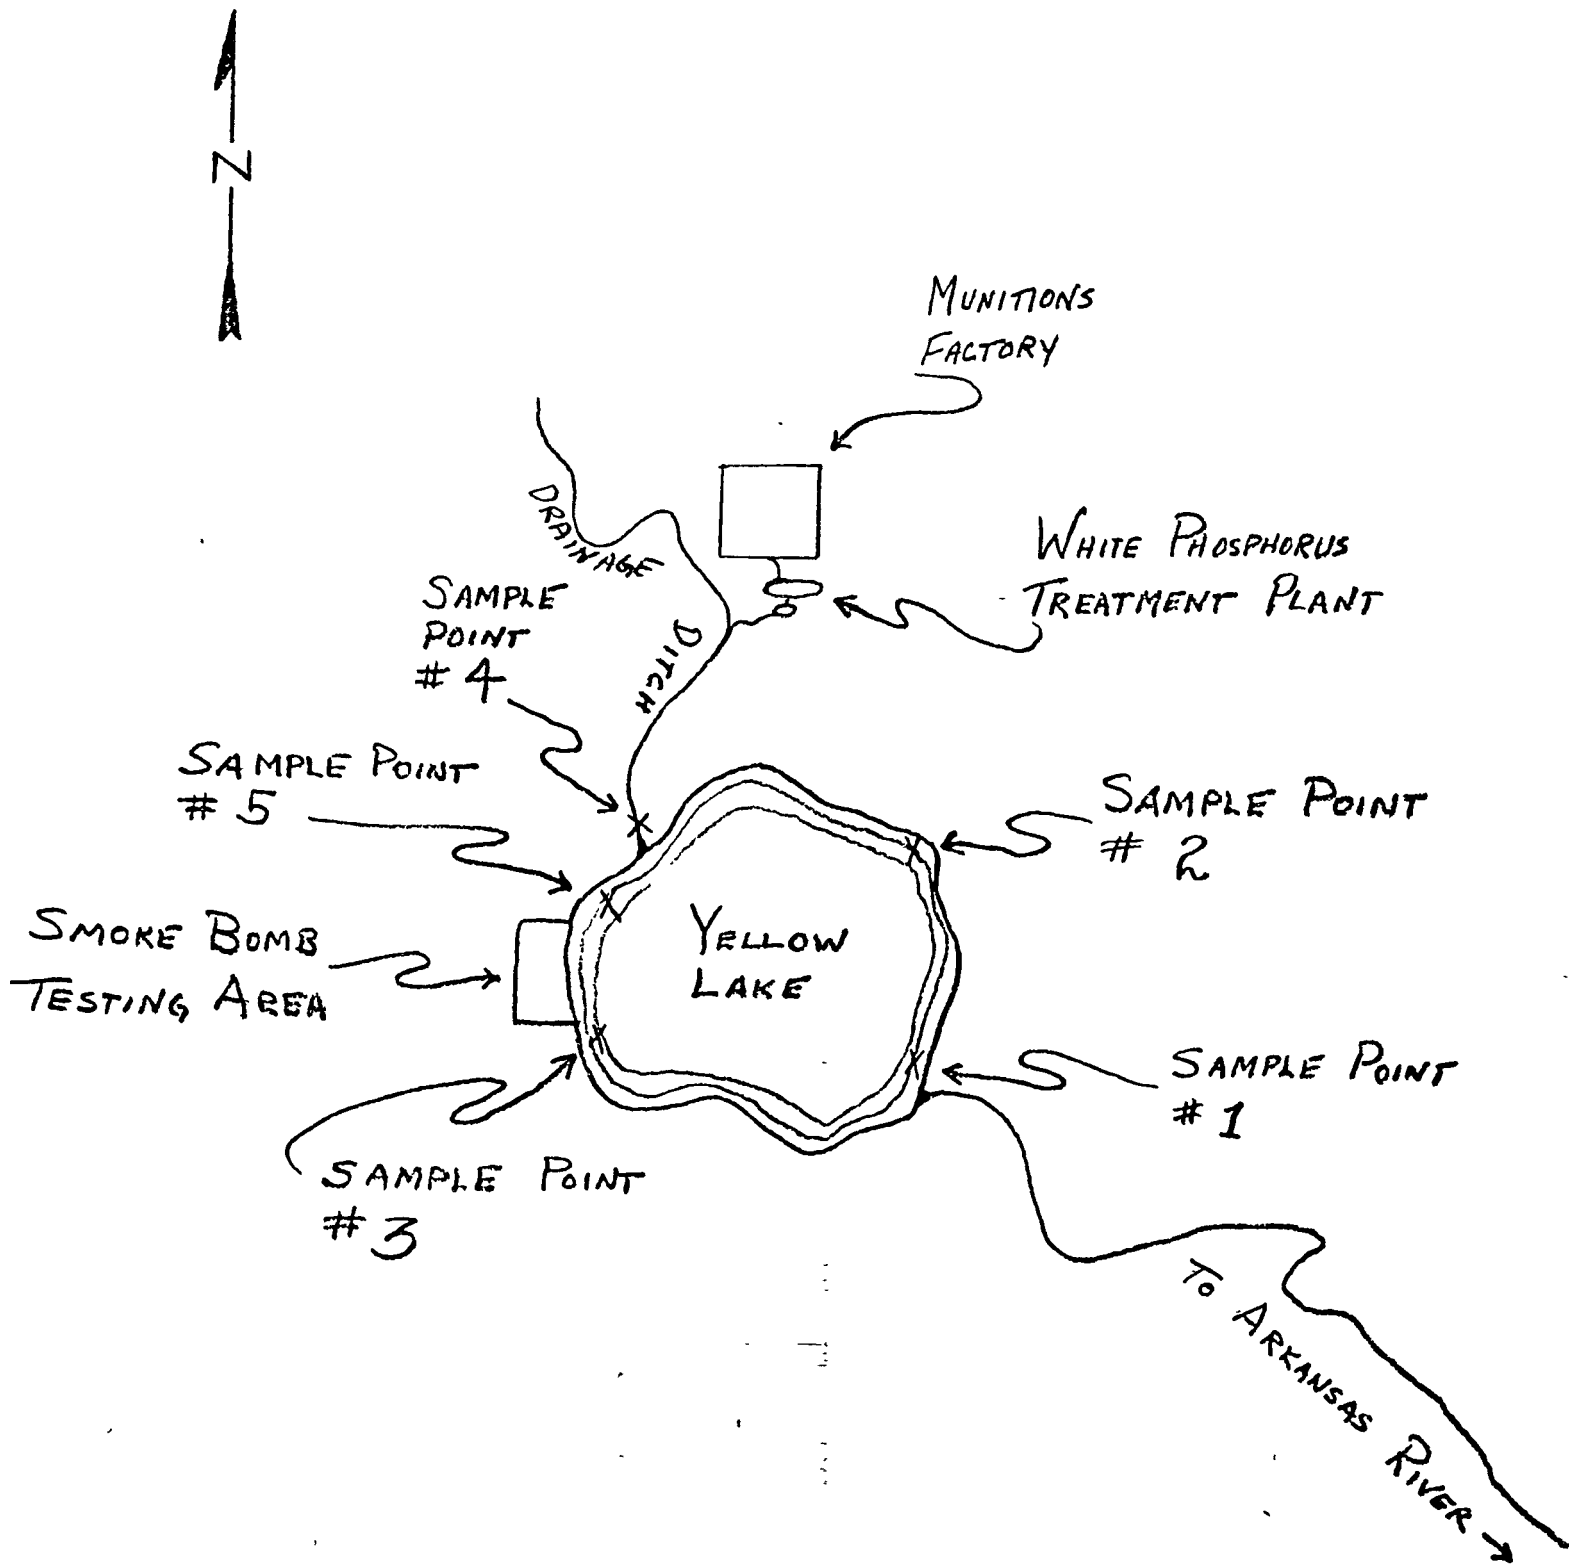 N
MUNITIONS
FACTORY
DRAINAGE
DITCH
WHITE PHOSPHORUS
TREATMENT PLANT
SAMPLE
POINT
# 4
SAMPLE POINT
# 5
SAMPLE POINT
# 2
SMOKE BOMB
TESTING AREA
YELLOW
LAKE
SAMPLE POINT
# 1
SAMPLE POINT
# 3
TO ARKANSAS RIVER